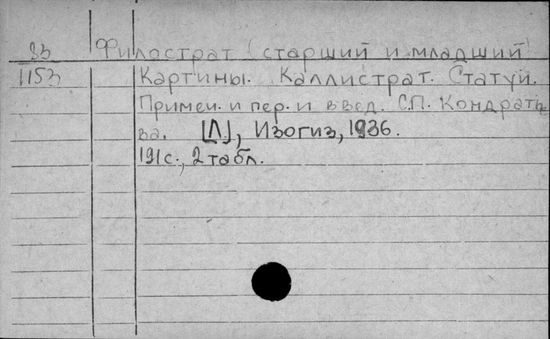 93 Филострат (старший и младший)
1153 Картины. Каллистрат. Статуи.
Примеч. и пер. и введ. С.П. Кондрать
ва. [Л], Изогиз, 1936.
191с., 2 табл.